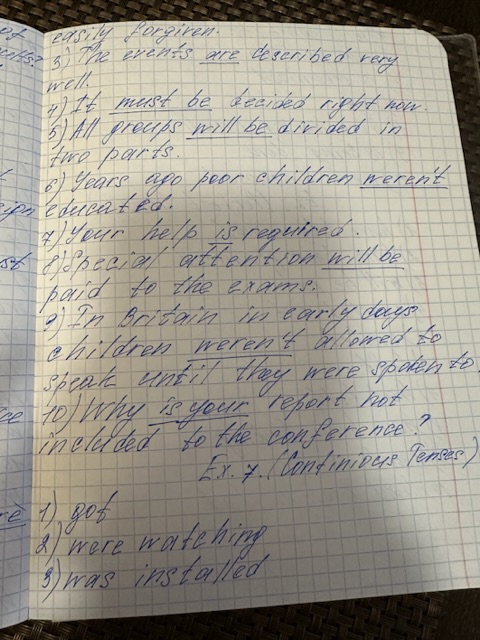 easily forgiven.
3) The events are described very
well.
4) It must be decided right now.
5) All groups will be divided in
two parts.
6) Years ago poor children weren't
educated.
7) Your help is required.
8) Special attention will be
paid to the exams.
9) In Britain in early days
children weren't allowed to
speak until they were spoken to.
10) Why is your report not
included to the conference?
Ex. 7. (Continious Tenses)
1) got
2) were watching
3) was installed